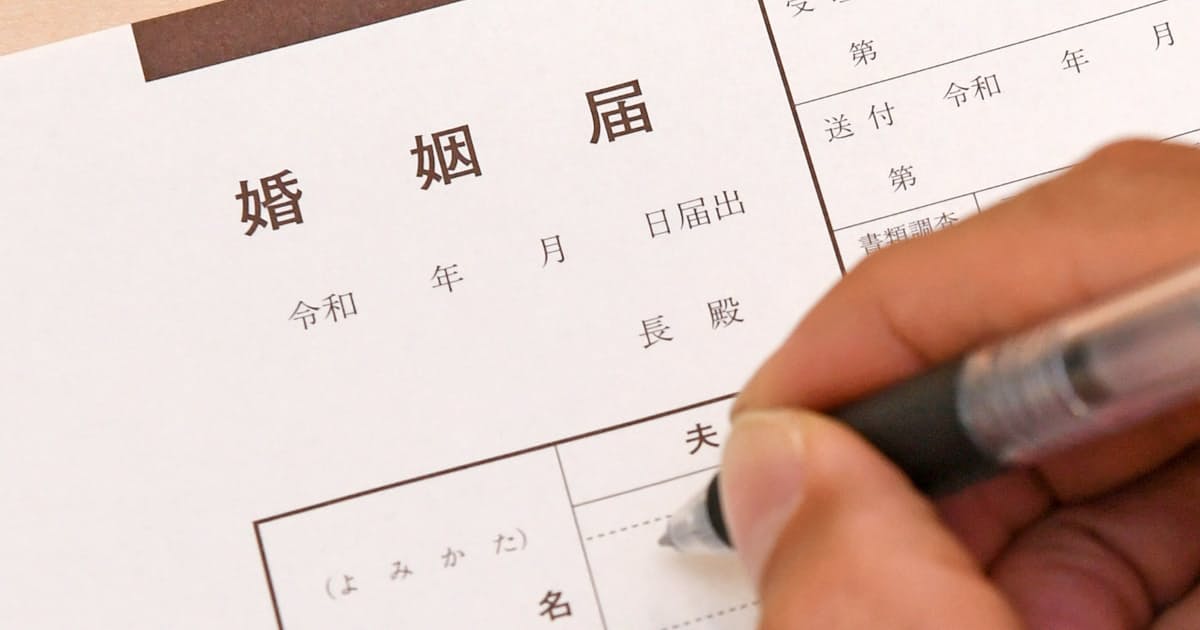 婚姻届
令和 年 月 日届出
長 殿
第
年 月
送付 令和
第
書類調査
夫
(よみかた)
名